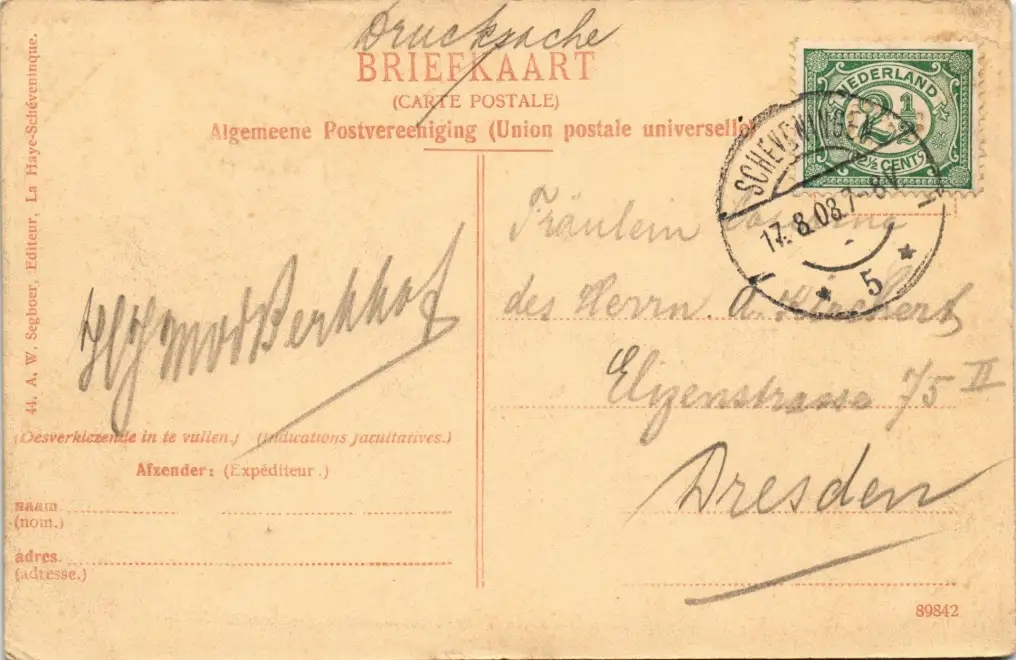 Drucksache
BRIEFKAART
(CARTE POSTALE)
Algemeene Postvereeniging (Union postale universelle)
NEDERLAND
2½
2½ CENT
SCHEVENINGEN
17.8.08.7-8V
5
44. A. W. Segboer, Editeur, La Haye-Schéveninque.
Fräulein
des Herrn. A.
75 II
Dresden
(Desverkiezende in te vullen.) (Indications facultatives.)
Afzender: (Expéditeur.)
naam
(nom.)
adres.
(adresse.)
89842